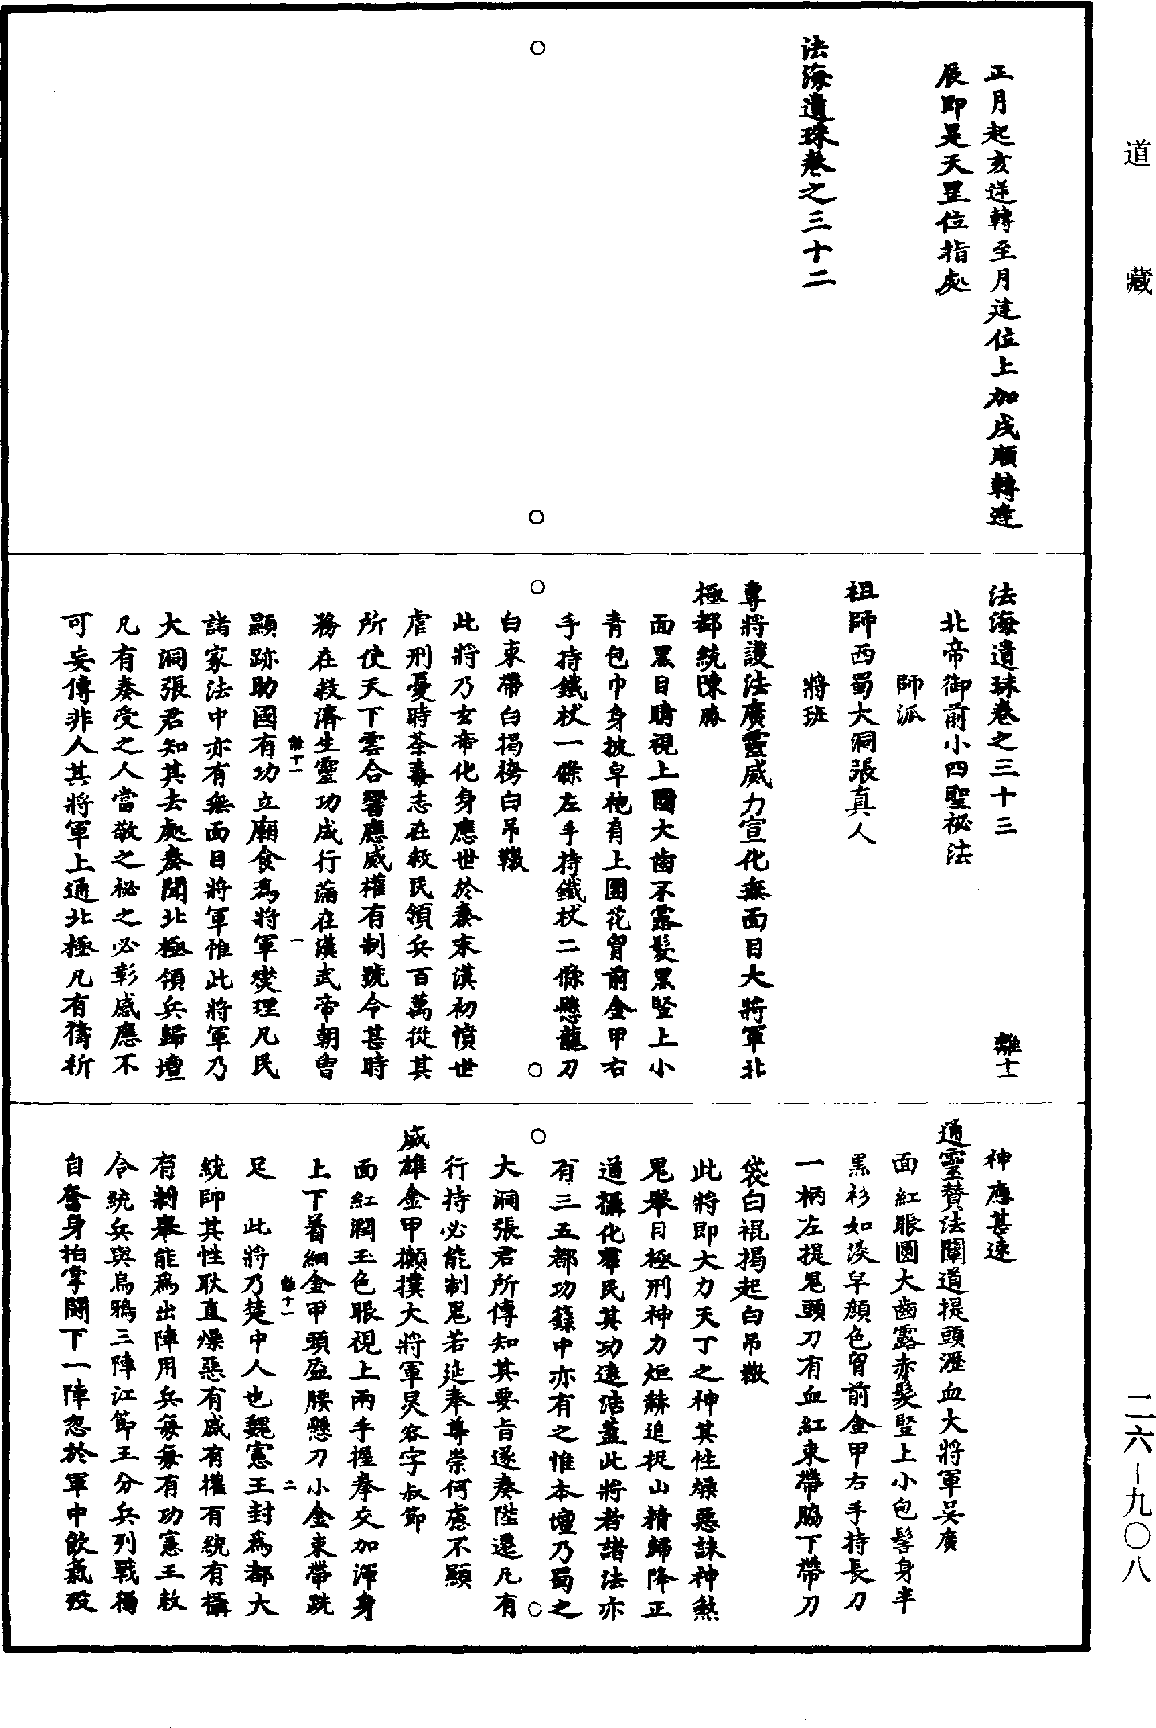 道藏
正月起亥逆轉至月建位上加戌順轉逢
辰即是天罡位指處
法海遺珠卷之三十二
法海遺珠卷之三十三
離十一
北帝御前小四聖祕法
師派
祖師西蜀大洞張真人
將班
專將護法廣靈威力宣化無面目大將軍北
極都統陳勝
面黑目睛視上圓大齒不露髮黑豎上小
青包巾身披皁袍有上團花胷前金甲右
手持鐵杖一條左手持鐵杖二條懸龍刀
白束帶白揭袴白吊𢄙
此將乃玄帝化身應世於秦末漢初憤世
虐刑憂時荼毒志在救民領兵百萬從其
所使天下雲合響應威權有制號令甚時
務在救濟生靈功成行滿在漢武帝朝曾
顯跡助國有功立廟食為將軍燮理凡民
諸家法中亦有無面目將軍惟此將軍乃
大洞張君知其去處奏聞北極領兵歸壇
凡有奏受之人當敬之祕之必彰感應不
可妄傳非人其將軍上通北極凡有禱祈
神應甚速
通靈贊法闡道提頭瀝血大將軍吳廣
面紅眼圓大齒露赤髮豎上小包髻身半
黑衫如淡皁顏色胷前金甲右手持長刀
一柄左提鬼頭刀有血紅束帶脇下帶刀
袋白裩揭起白吊𢄙
此將即大力天丁之神其性燥惡誅神煞
鬼舉目極刑神力炬赫追捉山精歸降正
道攝化羣民其功遠浩蓋此將者諸法亦
有三五都功籙中亦有之惟本壇乃蜀之
大洞張君所傳知其要旨遂奏陞遷凡有
行持必能制鬼若延奉尊崇何慮不顯
威雄金甲攧撲大將軍炅容字叔節
面紅潤玉色眼視上兩手握拳交加渾身
上下着細金甲頭盔腰懸刀小金束帶跣
足　此將乃楚中人也魏憲王封爲都大
統帥其性耿直燥惡有威有權有統有攝
有制舉能爲出陣用兵每每有功憲王敕
令統兵與烏鴉三陣江節王分兵列戰獨
自奮身拍掌鬪下一陣忽於軍中飲氣歿
二六-九〇八